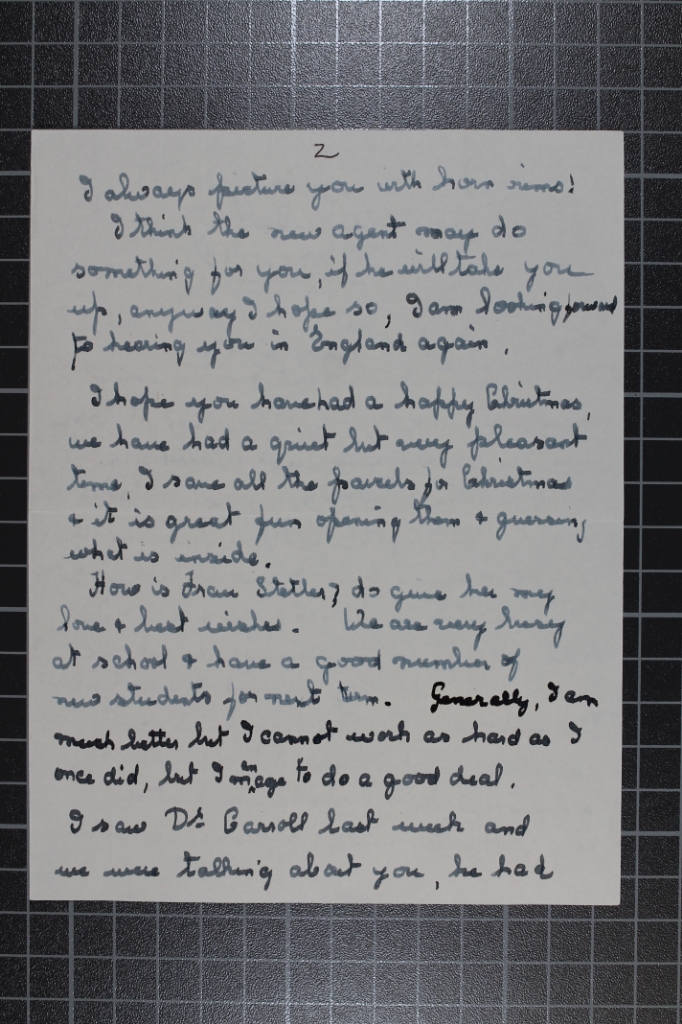 2
I always picture you with horn rims!
I think the new agent may do
something for you, if he will take you
up, anyway I hope so, I am looking forward
to hearing you in England again.
I hope you have had a happy Christmas,
we have had a quiet but very pleasant
time, I save all the parcels for Christmas
& it is great fun opening them & guessing
what is inside.
How is Frau Stetler? do give her my
love & best wishes. We are very busy
at school & have a good number of
new students for next term. Generally, I am
much better but I cannot work as hard as I
once did, but I manage to do a good deal.
I saw Dr. Carroll last week and
we were talking about you, he had